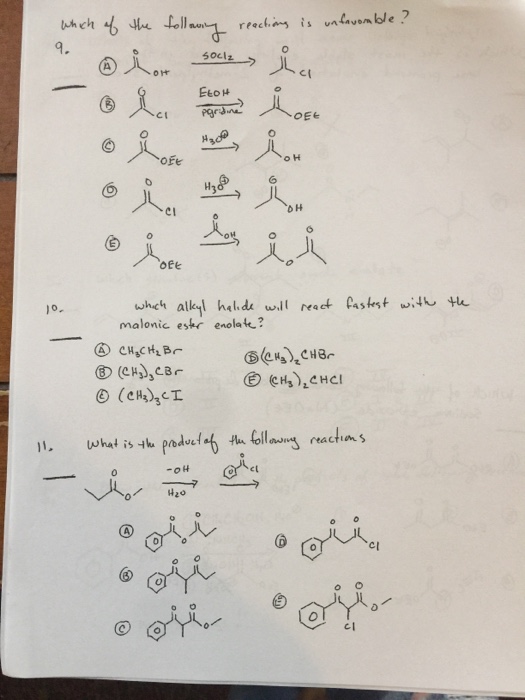 which of the following reactions is unfavorable?
9.
A OH SOCl2 Cl
B Cl EtOH pyridine OEt
C OEt H3O⊕ OH
D Cl H3O⊕ OH
E OEt OH O
10. which alkyl halide will react fastest with the
malonic ester enolate?
A CH3CH2Br D (CH3)2CHBr
B (CH3)3CBr E (CH3)2CHCl
C (CH3)3CI
11. what is the product of the following reactions
O O -OH H2O O Cl
A O O O
B O O
C O O O
D O O Cl
E O O O Cl